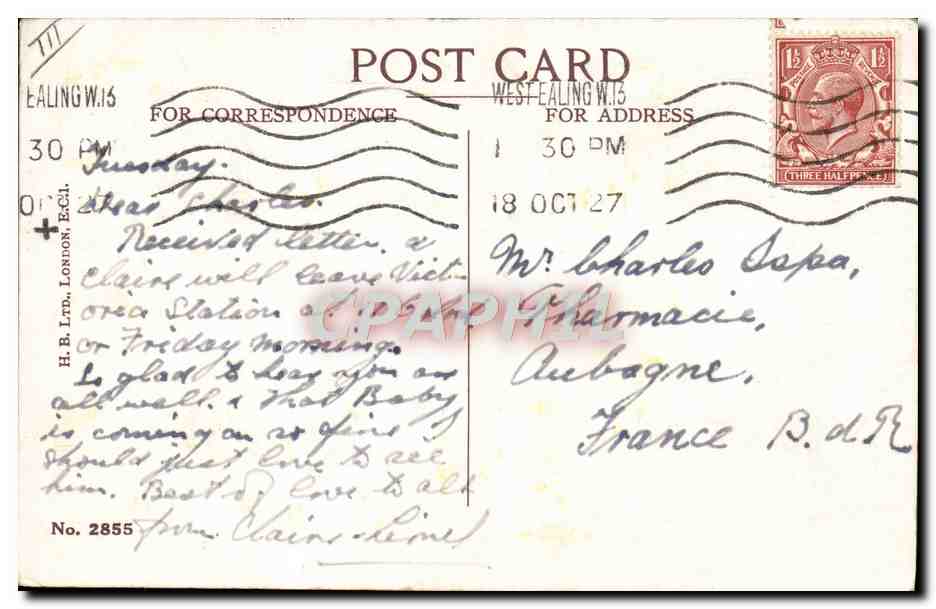 III
POST CARD
EALING W.13
WEST EALING W.13
FOR CORRESPONDENCE
FOR ADDRESS
30 PM
1 30 PM
18 OCT 27
1½ 1½
THREE HALFPENCE
H. B. LTD., LONDON, E.C.1.
Tuesday.
Dear Charles.
Received letter, &
Claire will leave Vict-
oria Station at
or Friday morning.
So glad to hear you are
all well. & that Baby
is coming on so fine I
should just love to see
him. Best of love to all
from Claire
Mr. Charles
Pharmacie,
Aubagne.
France B. d R
CPAPHIL
No. 2855